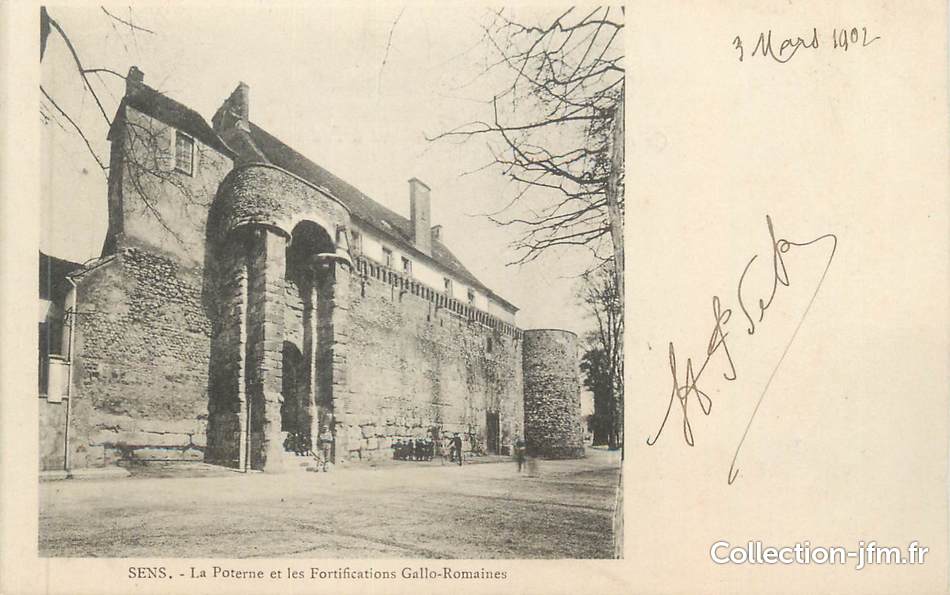 3 Mars 1902
Collection-jfm.fr
SENS. - La Poterne et les Fortifications Gallo-Romaines